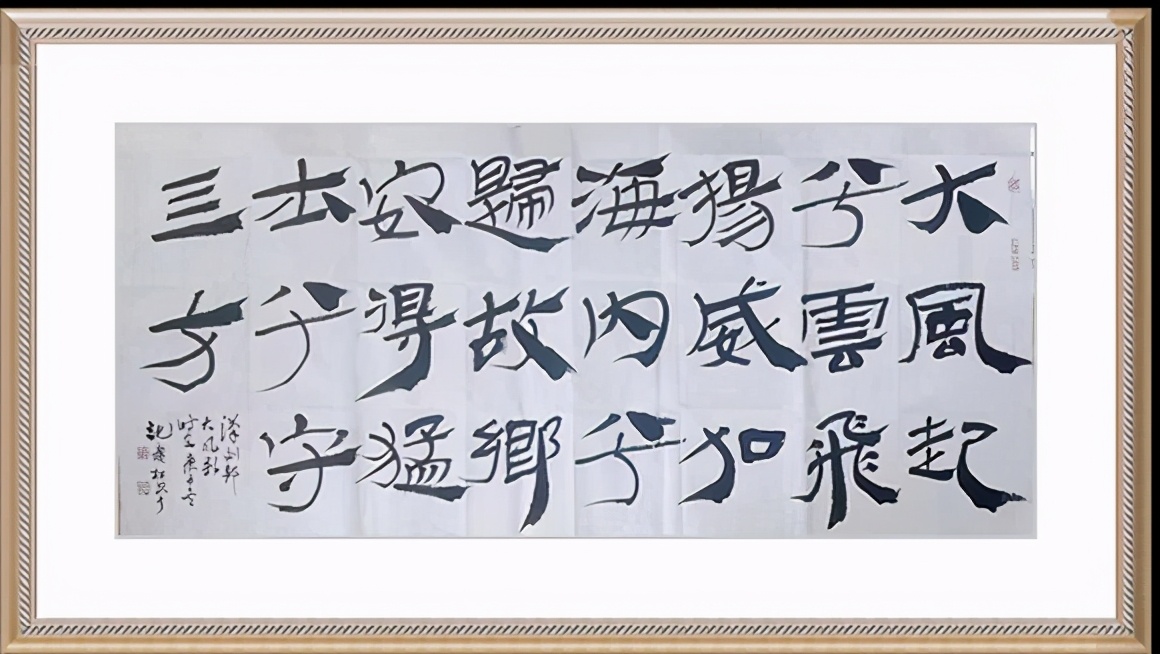 大風起
兮雲飛
揚威加
海内兮
歸故鄉
安得猛
士兮守
亖方
漢刘邦
大風歌